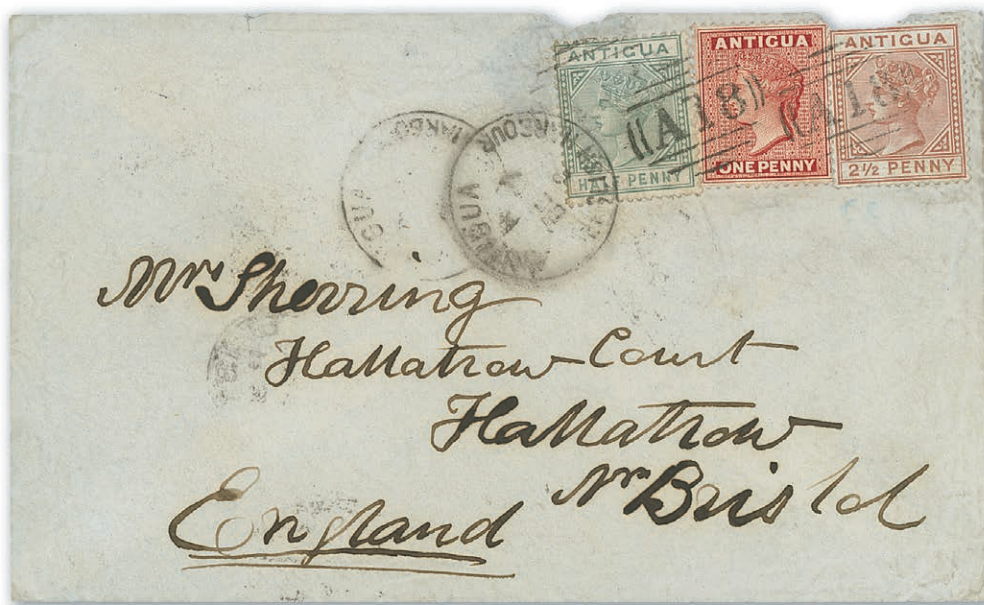 ANTIGUA
HALF PENNY
ANTIGUA
ONE PENNY
ANTIGUA
2½ PENNY
A18
A18
ANTIGUA
ENGLISH HARBOUR
Mrs Sherring
Hallatrow Court
Hallatrow
Nr Bristol
England